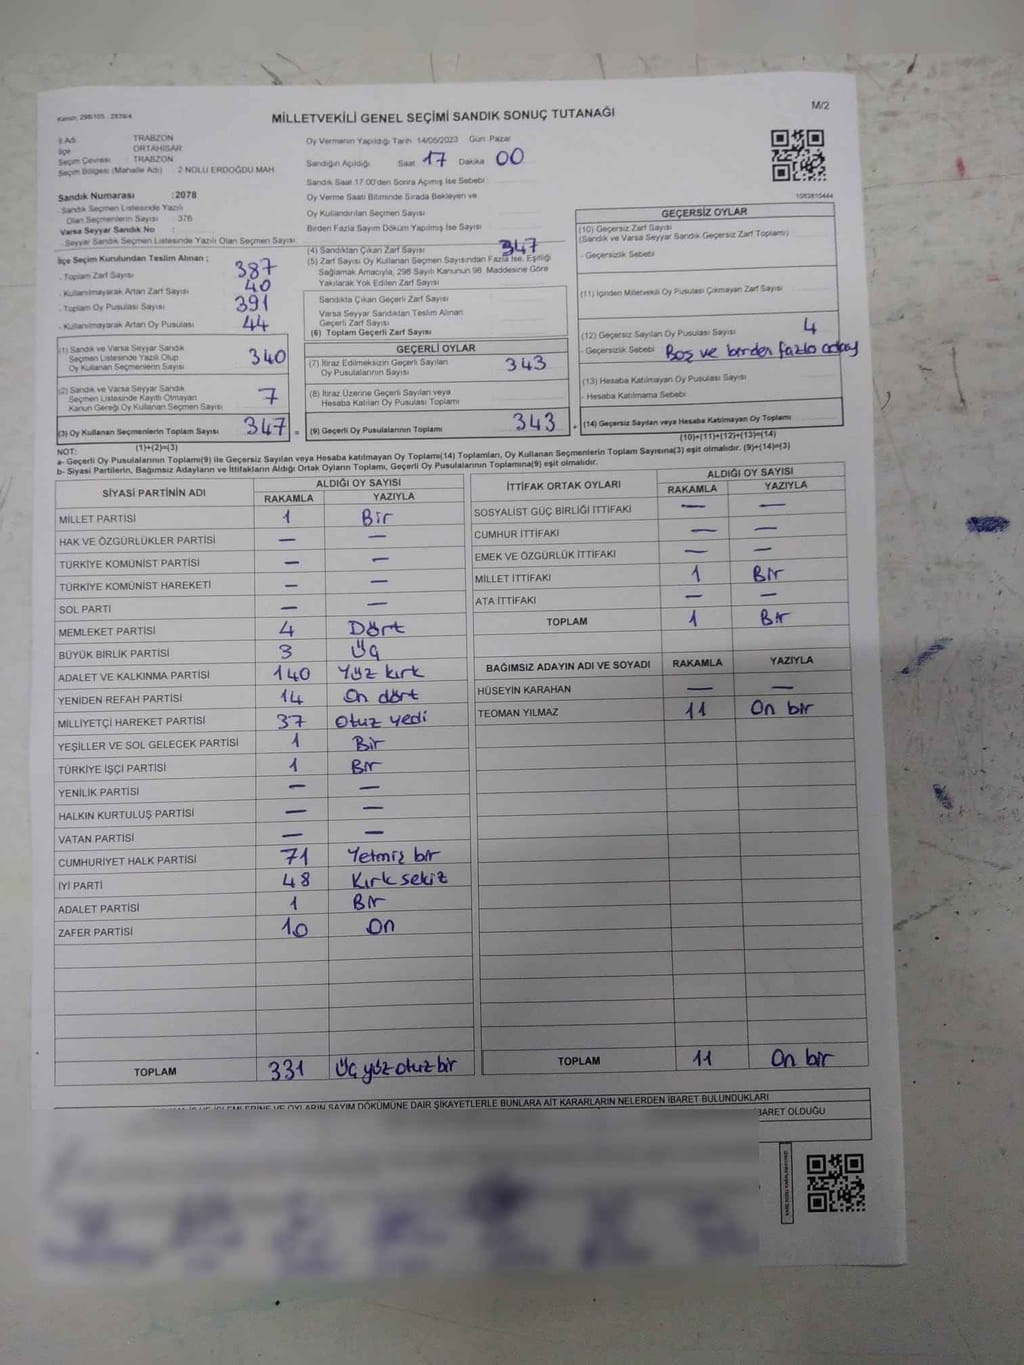 Kanun: 298/105 - 2839/4
MİLLETVEKİLİ GENEL SEÇİMİ SANDIK SONUÇ TUTANAĞI
M/2
İl Adı TRABZON
İlçe ORTAHİSAR
Seçim Çevresi : TRABZON
Seçim Bölgesi (Mahalle Adı) 2 NOLU ERDOĞDU MAH.
Oy Vermenin Yapıldığı Tarih 14/05/2023 Gün: Pazar
Sandığın Açıldığı Saat 17 Dakika 00
Sandık Saat 17.00'den Sonra Açılmış İse Sebebi
Oy Verme Saati Bitiminde Sırada Bekleyen ve
Oy Kullandırılan Seçmen Sayısı
Birden Fazla Sayım Döküm Yapılmış İse Sayısı
Sandık Numarası : 2078
- Sandık Seçmen Listesinde Yazılı
Olan Seçmenlerin Sayısı 376
Varsa Seyyar Sandık No :
- Seyyar Sandık Seçmen Listesinde Yazılı Olan Seçmen Sayısı
İlçe Seçim Kurulundan Teslim Alınan ;
- Toplam Zarf Sayısı 387
- Kullanılmayarak Artan Zarf Sayısı 40
- Toplam Oy Pusulası Sayısı 391
- Kullanılmayarak Artan Oy Pusulası 44
(1) Sandık ve Varsa Seyyar Sandık
Seçmen Listesinde Yazılı Olup
Oy Kullanan Seçmenlerin Sayısı 340
(2) Sandık ve Varsa Seyyar Sandık
Seçmen Listesinde Kayıtlı Olmayan
Kanun Gereği Oy Kullanan Seçmen Sayısı 7
(3) Oy Kullanan Seçmenlerin Toplam Sayısı 347 =
(1)+(2)=(3)
(4) Sandıktan Çıkan Zarf Sayısı 347
(5) Zarf Sayısı Oy Kullanan Seçmen Sayısından Fazla İse, Eşitliği
Sağlamak Amacıyla, 298 Sayılı Kanunun 98. Maddesine Göre
Yakılarak Yok Edilen Zarf Sayısı
Sandıkta Çıkan Geçerli Zarf Sayısı
Varsa Seyyar Sandıktan Teslim Alınan
Geçerli Zarf Sayısı
(6) Toplam Geçerli Zarf Sayısı
GEÇERLİ OYLAR
(7) İtiraz Edilmeksizin Geçerli Sayılan
Oy Pusulalarının Sayısı 343
(8) İtiraz Üzerine Geçerli Sayılan veya
Hesaba Katılan Oy Pusulası Toplamı
(9) Geçerli Oy Pusulalarının Toplamı 343 +
1083810444
GEÇERSİZ OYLAR
(10) Geçersiz Zarf Sayısı
(Sandık ve Varsa Seyyar Sandık Geçersiz Zarf Toplamı)
- Geçersizlik Sebebi
(11) İçinden Milletvekili Oy Pusulası Çıkmayan Zarf Sayısı
(12) Geçersiz Sayılan Oy Pusulası Sayısı 4
- Geçersizlik Sebebi Boş ve birden fazla aday
(13) Hesaba Katılmayan Oy Pusulası Sayısı
- Hesaba Katılmama Sebebi
(14) Geçersiz Sayılan veya Hesaba Katılmayan Oy Toplamı
(10)+(11)+(12)+(13)=(14)
NOT:
a- Geçerli Oy Pusulalarının Toplamı(9) ile Geçersiz Sayılan veya Hesaba katılmayan Oy Toplam(14) Toplamları, Oy Kullanan Seçmenlerin Toplam Sayısına(3) eşit olmalıdır. (9)+(14)=(3)
b- Siyasi Partilerin, Bağımsız Adayların ve İttifakların Aldığı Ortak Oyların Toplamı, Geçerli Oy Pusulalarının Toplamına(9) eşit olmalıdır.
SİYASİ PARTİNİN ADI ALDIĞI OY SAYISI
RAKAMLA YAZIYLA
MİLLET PARTİSİ 1 Bir
HAK VE ÖZGÜRLÜKLER PARTİSİ — —
TÜRKİYE KOMÜNİST PARTİSİ — —
TÜRKİYE KOMÜNİST HAREKETİ — —
SOL PARTİ — —
MEMLEKET PARTİSİ 4 Dört
BÜYÜK BİRLİK PARTİSİ 3 Üç
ADALET VE KALKINMA PARTİSİ 140 Yüz kırk
YENİDEN REFAH PARTİSİ 14 On dört
MİLLİYETÇİ HAREKET PARTİSİ 37 Otuz yedi
YEŞİLLER VE SOL GELECEK PARTİSİ 1 Bir
TÜRKİYE İŞÇİ PARTİSİ 1 Bir
YENİLİK PARTİSİ — —
HALKIN KURTULUŞ PARTİSİ — —
VATAN PARTİSİ — —
CUMHURİYET HALK PARTİSİ 71 Yetmiş bir
İYİ PARTİ 48 Kırk sekiz
ADALET PARTİSİ 1 Bir
ZAFER PARTİSİ 10 On
TOPLAM 331 Üç yüz otuz bir
İTTİFAK ORTAK OYLARI ALDIĞI OY SAYISI
RAKAMLA YAZIYLA
SOSYALİST GÜÇ BİRLİĞİ İTTİFAKI — —
CUMHUR İTTİFAKI — —
EMEK VE ÖZGÜRLÜK İTTİFAKI — —
MİLLET İTTİFAKI 1 Bir
ATA İTTİFAKI — —
TOPLAM 1 Bir
BAĞIMSIZ ADAYIN ADI VE SOYADI RAKAMLA YAZIYLA
HÜSEYİN KARAHAN — —
TEOMAN YILMAZ 11 On bir
TOPLAM 11 On bir
İŞLEMLERİNE VE OYLARIN SAYIM DÖKÜMÜNE DAİR ŞİKAYETLERLE BUNLARA AİT KARARLARIN NELERDEN İBARET BULUNDUKLARI
İBARET OLDUĞU